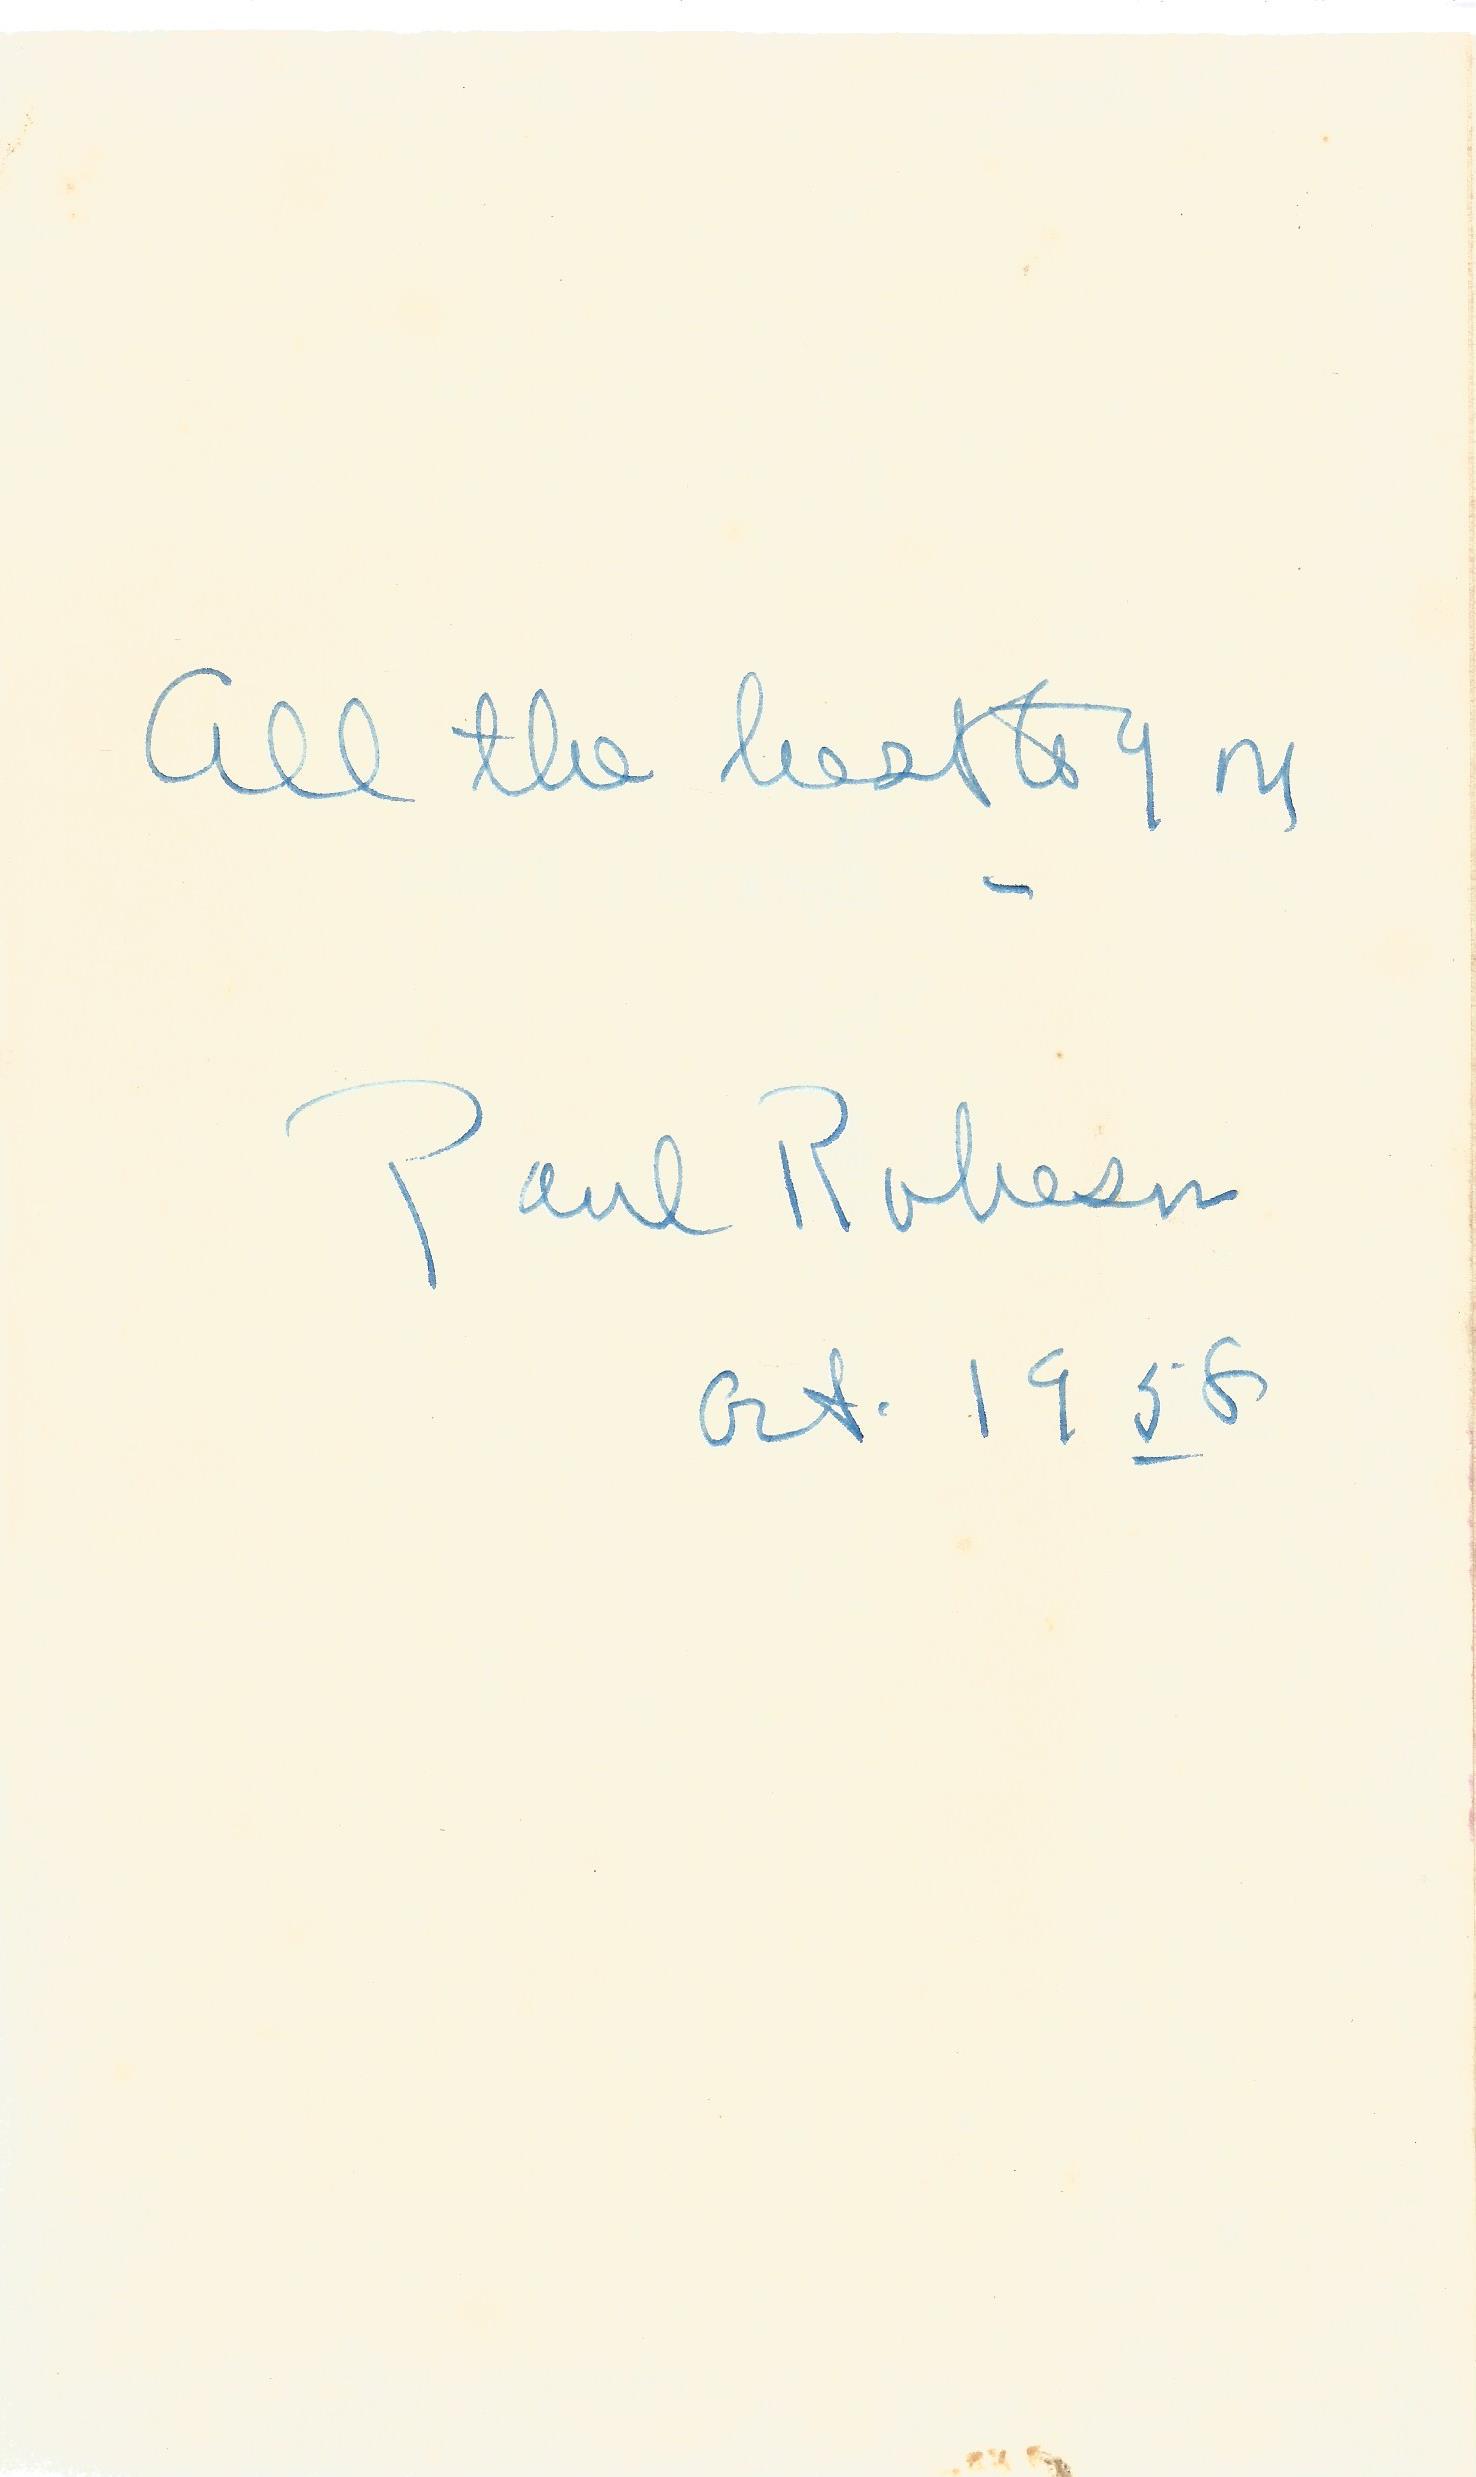 All the best to you
Paul Robeson
Oct. 1958